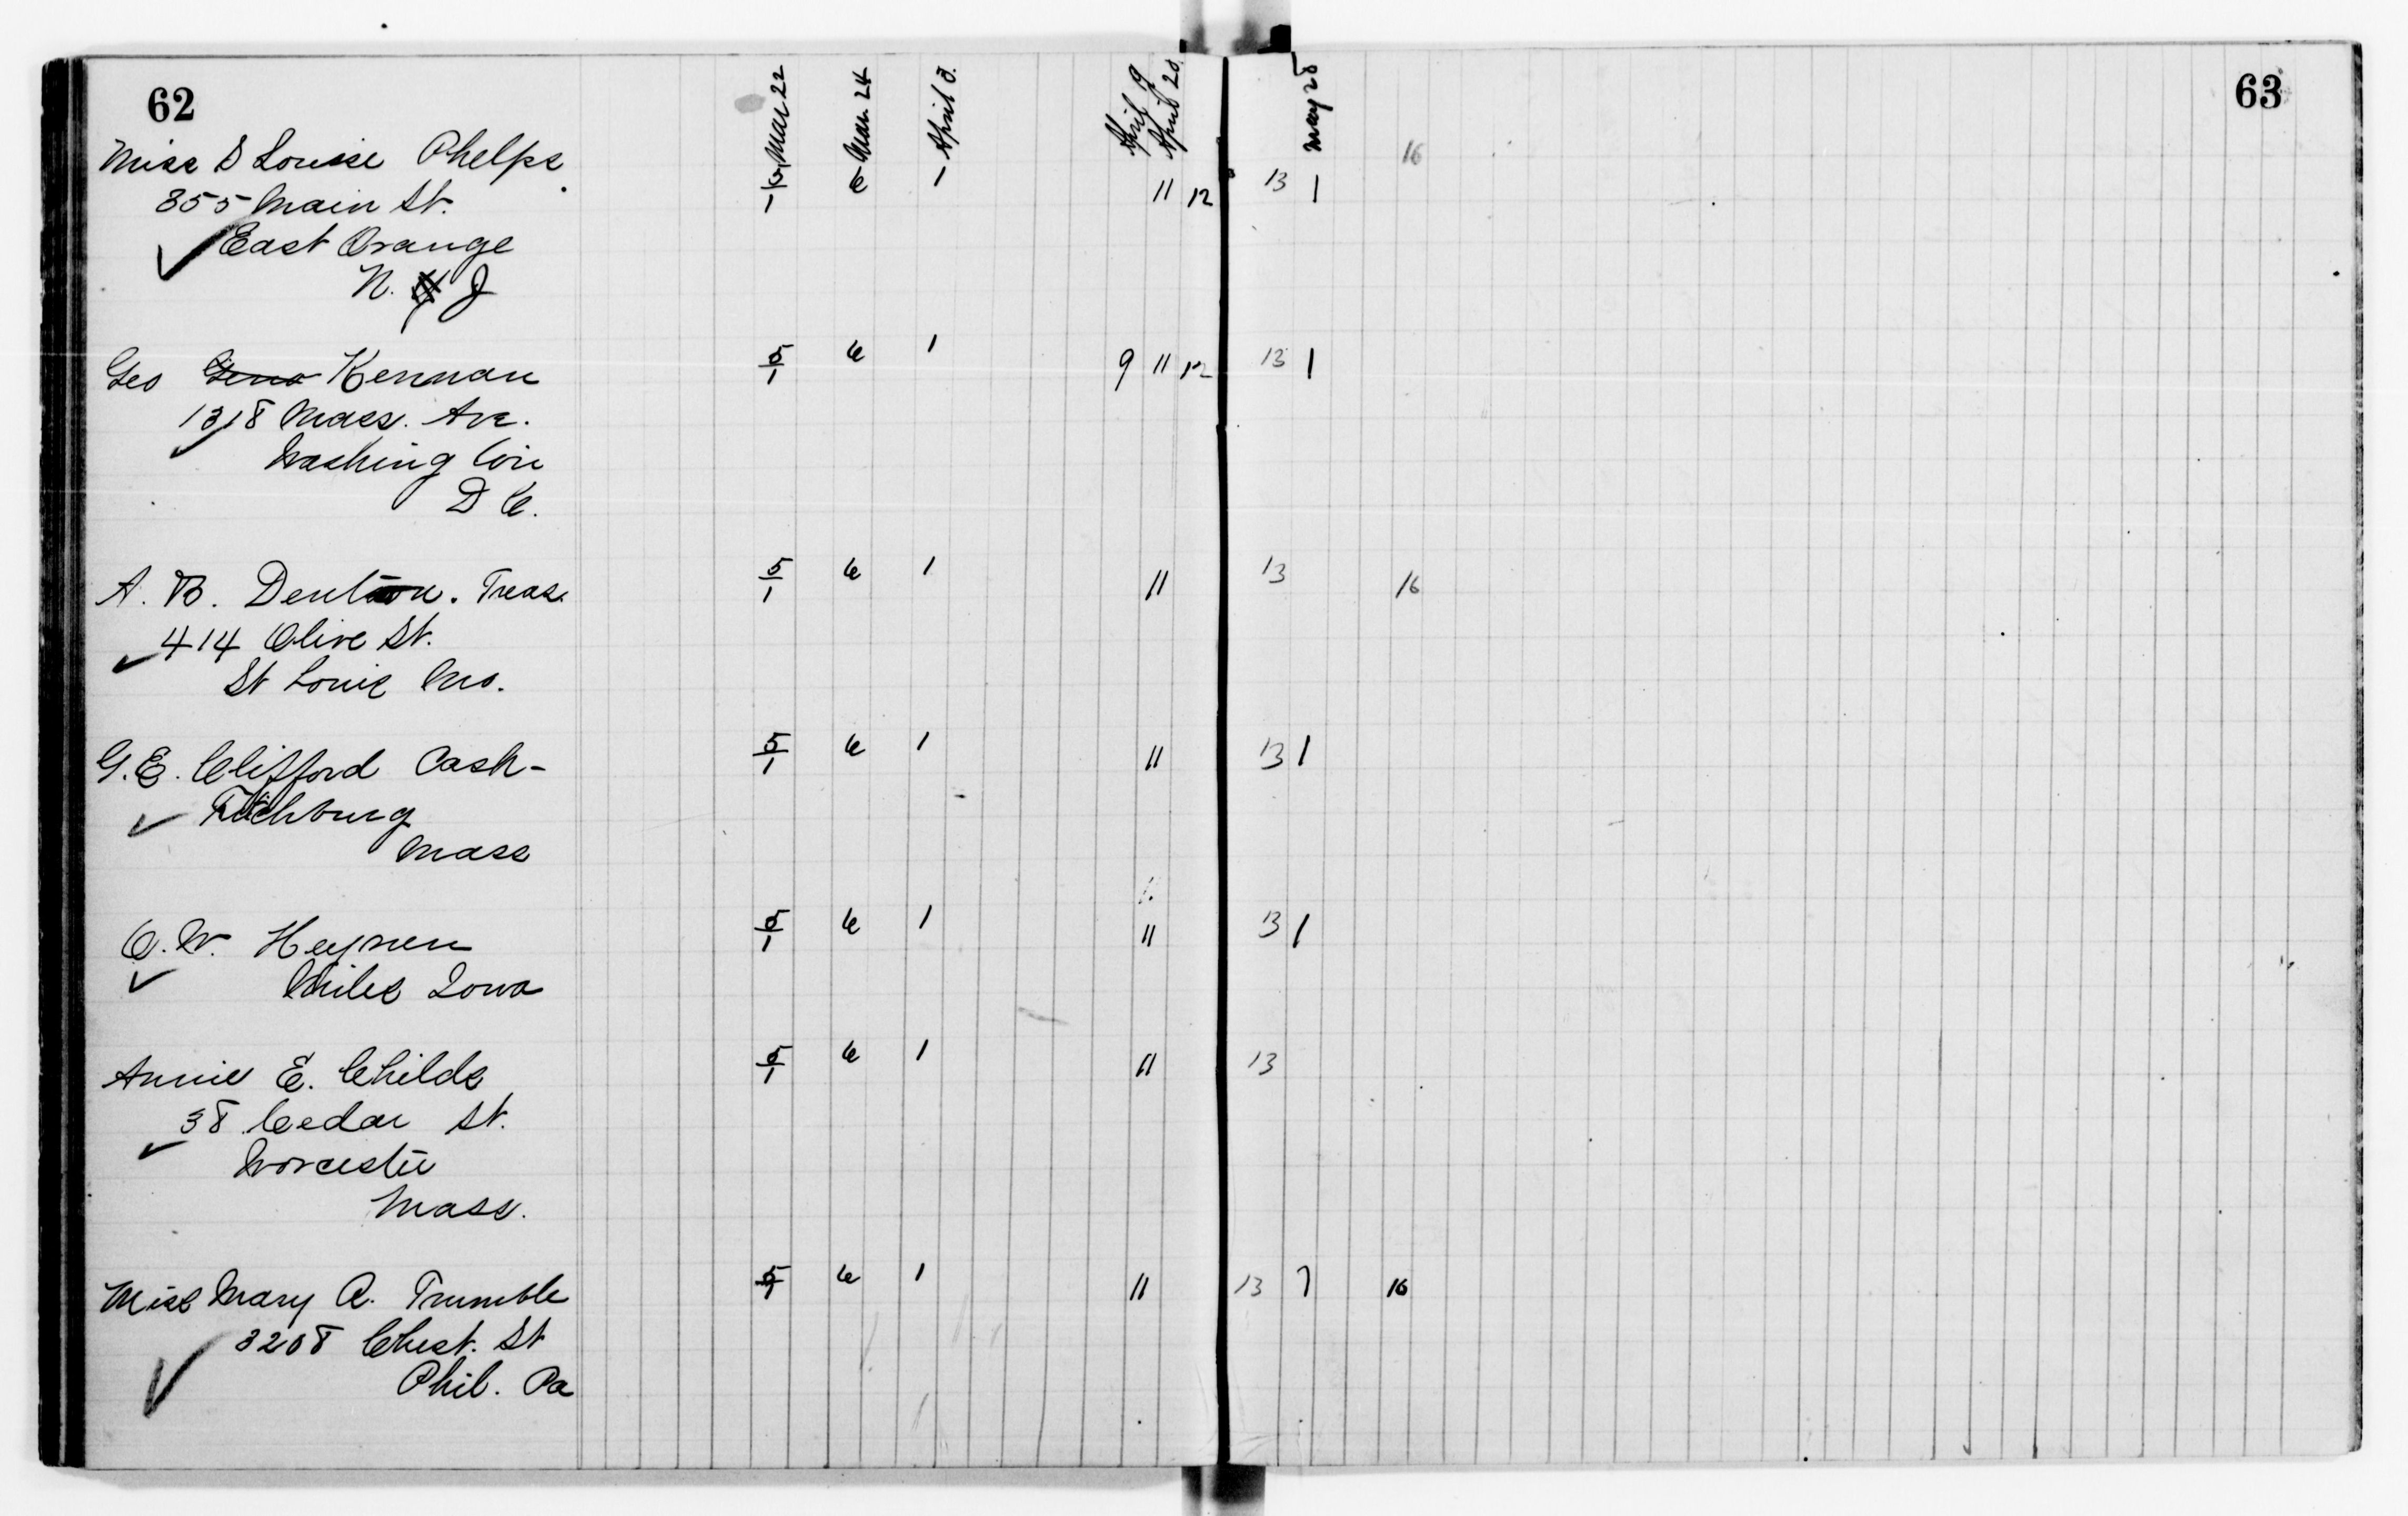 62
63
Mar 22
Mar 24
April 3.
April 9
April 20
May 28
Miss S Louise Phelps
16
355 Main St.
11 12 13 1
East Orange
N. Y J
Geo Geno Kennan
5/1 6 1 9 11 12 13 1
1318 Mass. Ave.
Washington
D C.
A. B. Denton. Treas.
5/1 6 1 11 13 16
414 Olive St.
St Louis Mo.
G. E. Clifford Cash-
5/1 6 1 11 13 1
Fitchburg
Mass
O. W. Heynen
5/1 6 1 11 13 1
Miles Iowa
Annie E. Childs
5/1 6 1 11 13
38 Cedar St.
Worcester
Mass.
Miss Mary A. Trumble
5/1 6 1 11 13 1 16
3208 Chest. St
Phil. Pa